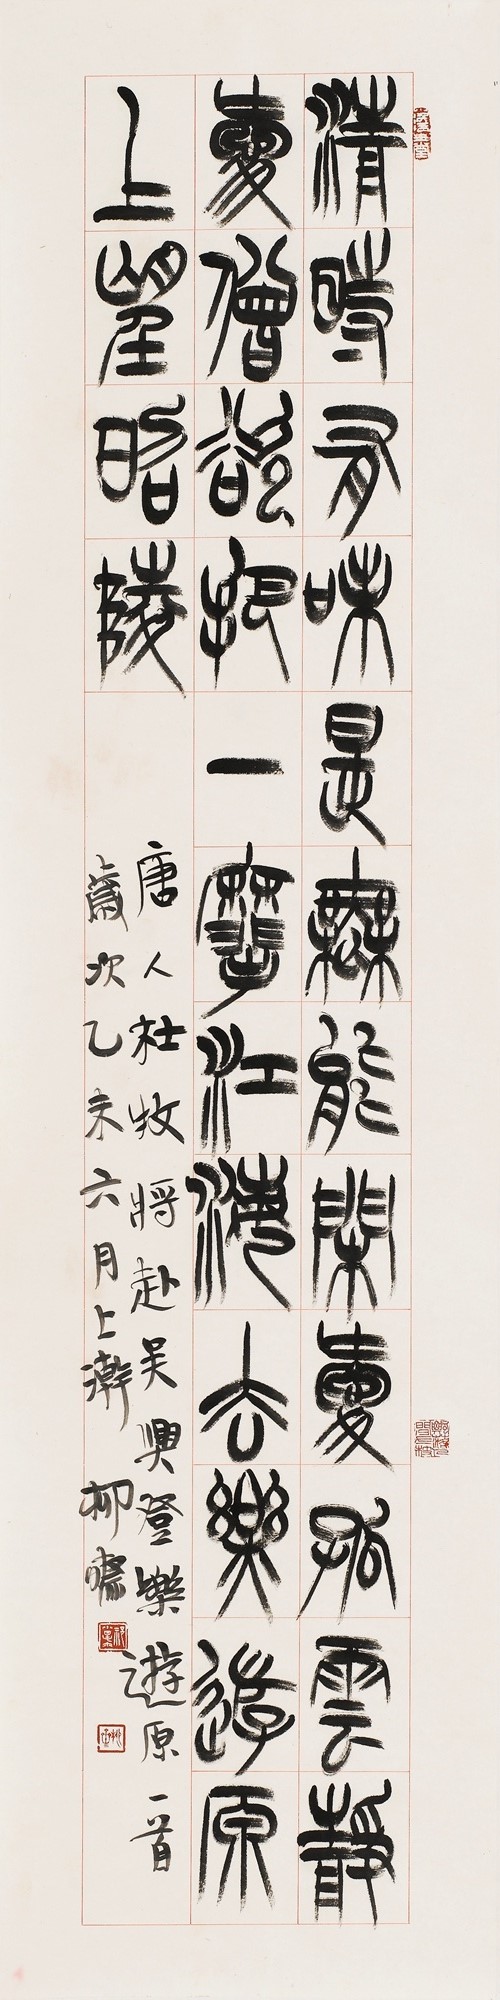 清時有味是無能閒愛孤雲靜
愛僧欲把一麾江海去樂遊原
上望昭陵
唐人杜牧將赴吴興登樂遊原一首
歲次乙未六月上澣柳嘯